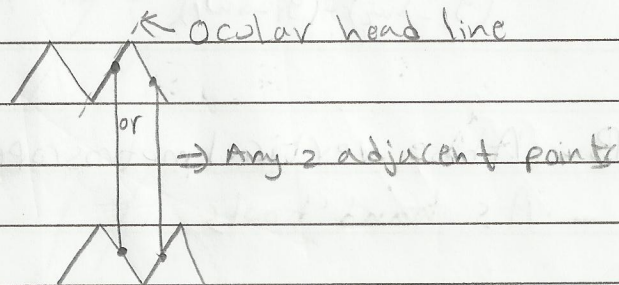 Ocular head line
or
⇒ Any 2 adjacent points